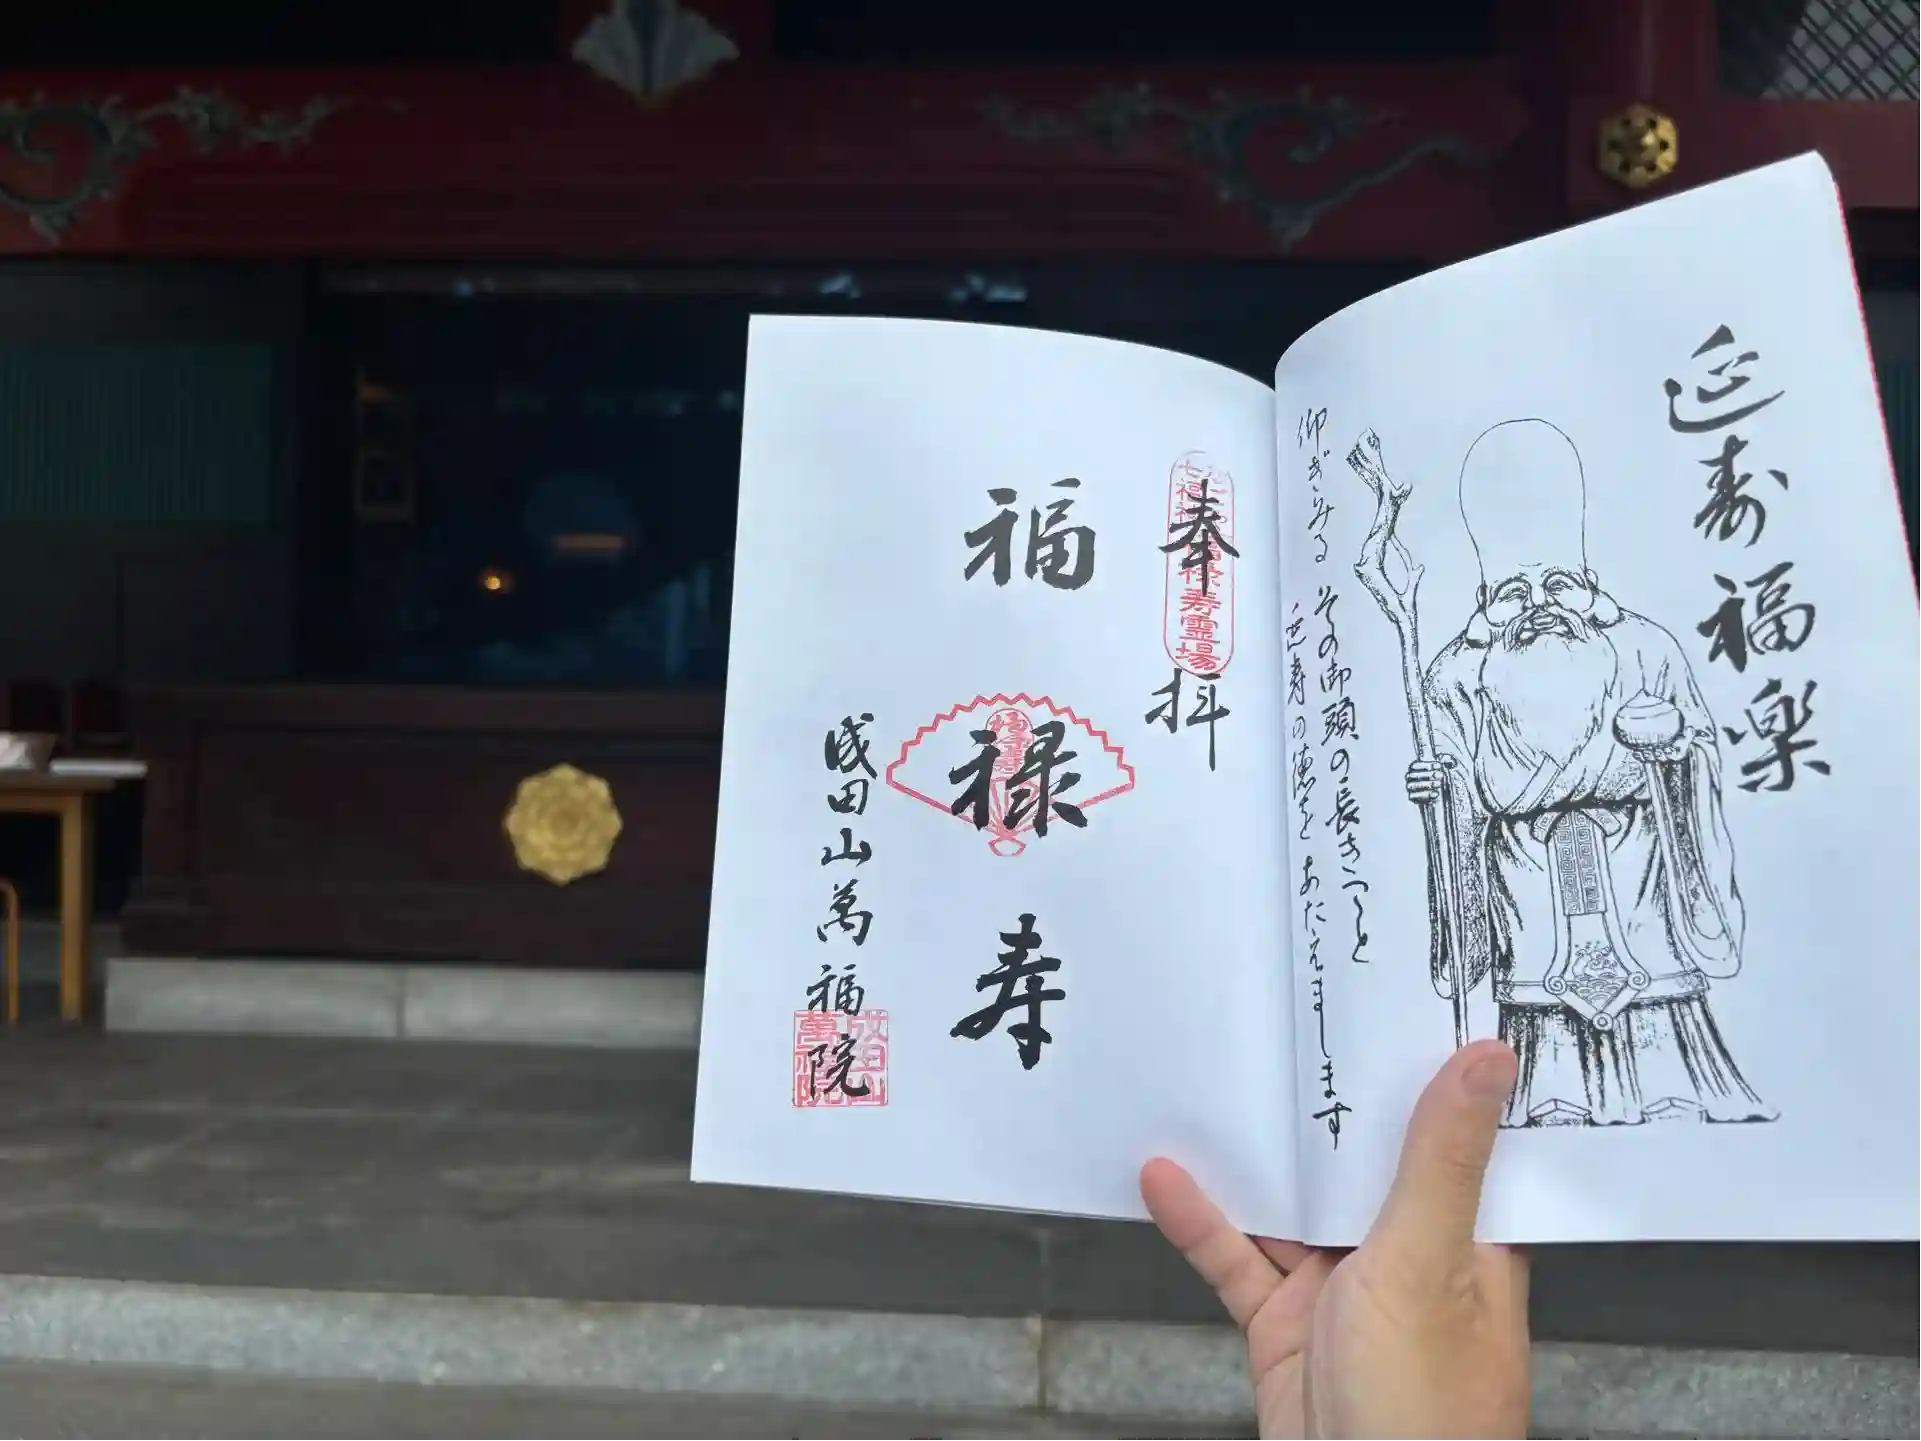 延寿福楽
仰ぎみる その御頭の長きごと
延寿の徳を あたえまします
奉拝
七福神
福禄寿霊場
福禄寿
成田山萬福院
成田山
萬福院